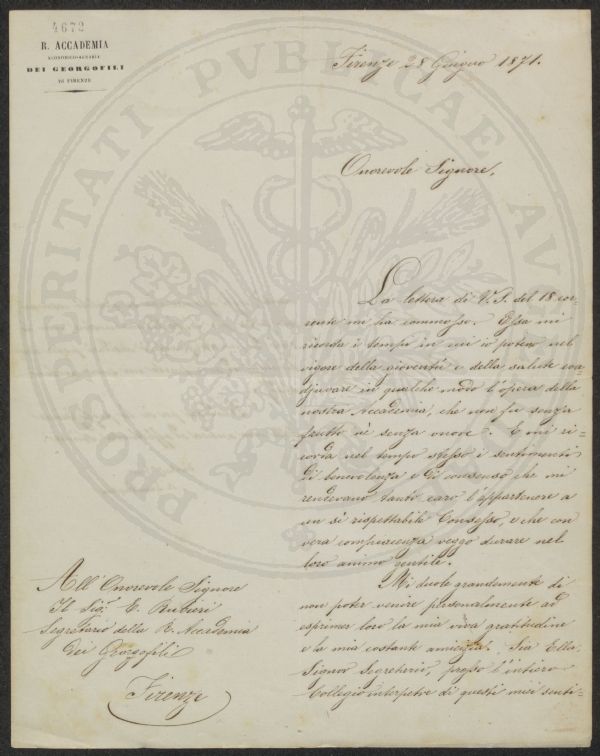 4672
R. ACCADEMIA
ECONOMICO-AGRARIA
DEI GEORGOFILI
DI FIRENZE
Firenze 28 Giugno 1871.
Onorevole Signore,
La lettera di V. S. del 18 cor-
rente mi ha commosso. Essa mi
ricorda i tempi in cui io poteva nel
vigore della gioventù e della salute coa-
djuvare in qualche modo l'opera della
nostra Accademia, che non fu senza
frutto nè senza onore. E mi ri-
corda nel tempo stesso i sentimenti
di benevolenza e di consenso che mi
rendevano tanto caro l'appartenere a
un sì rispettabile Consesso, e che con
vera compiacenza veggo durare nel
loro animo gentile.
Mi duole grandemente di
non poter venire personalmente ad
esprimer loro la mia viva gratitudine
e la mia costante amicizia. Sia Ella,
Signor Segretario, presso l'intiero
Collegio interpetre di questi miei senti-
All' Onorevole Signore
Il Sig. E. Rubieri
Segretario della R. Accademia
dei Georgofili
Firenze
PROSPERITATI PUBLICAE AU